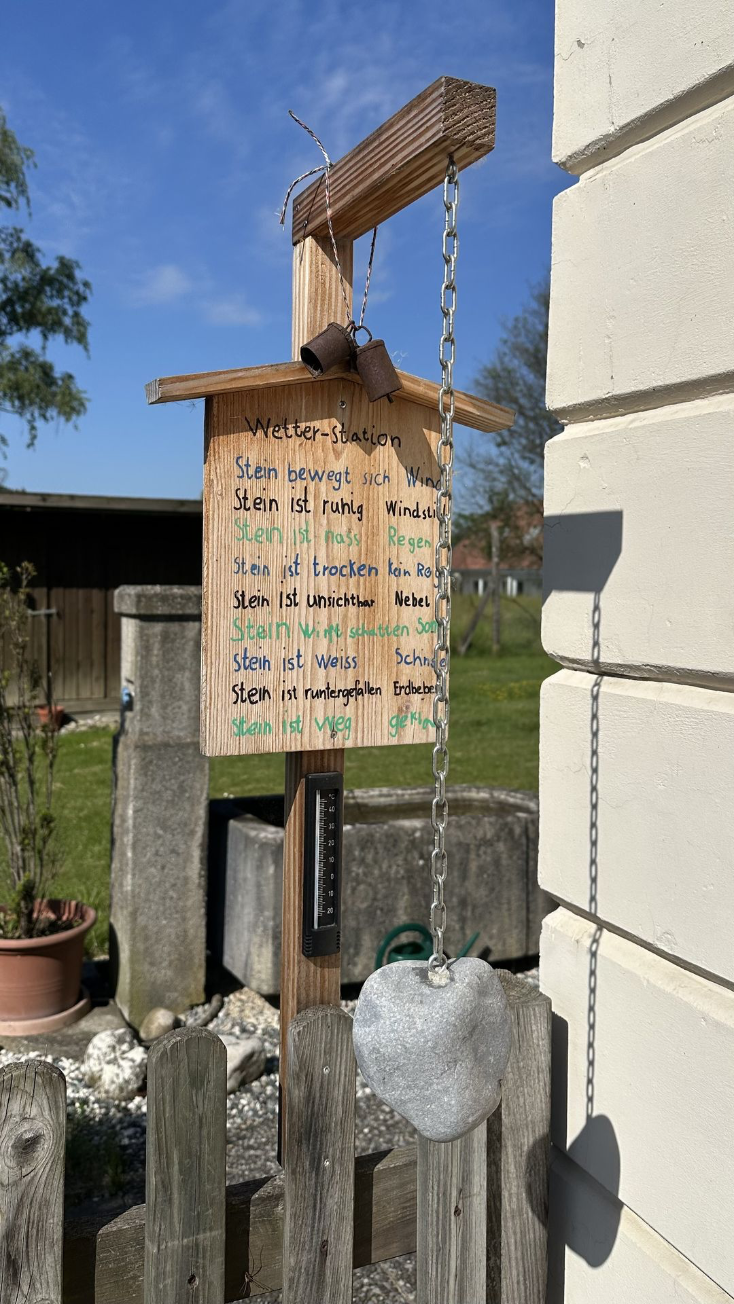 Wetter-station
Stein bewegt sich Wind
Stein ist ruhig Windsti
Stein ist nass Regen
Stein ist trocken kein Reg
Stein ist unsichtbar Nebel
Stein wirft schatten Son
Stein ist weiss Schnee
Stein ist runtergefallen Erdbeben
Stein ist weg gekla
°C
40
30
20
10
0
10
20